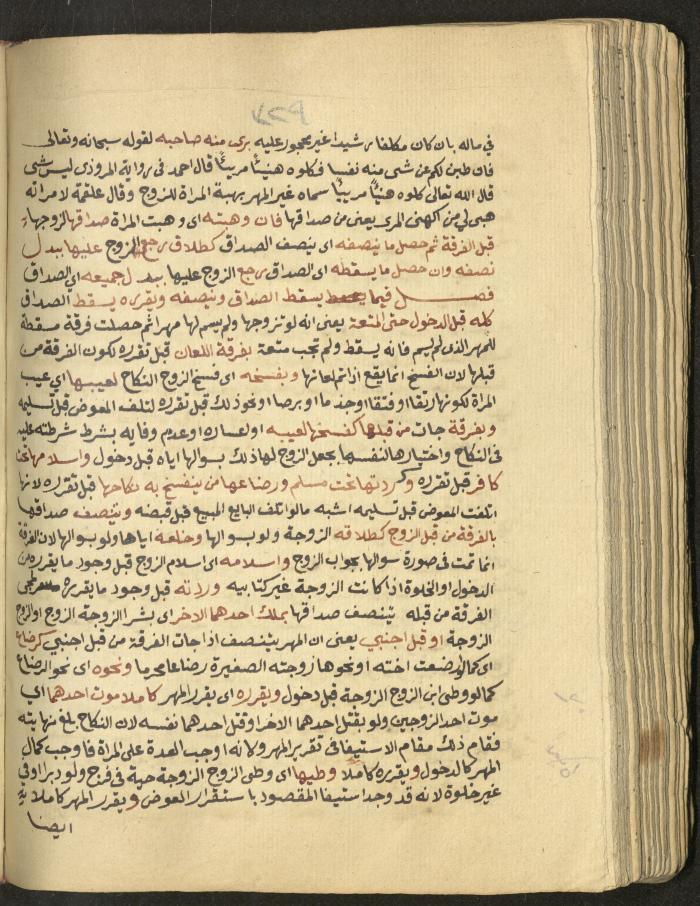 في ماله بان كان مكلفا رشيدا غير محجور عليه برئ منه صاحبه لقوله سبحانه وتعالى
فان طبن لكم عن شي منه نفسا فكلوه هنيئا مريئا قال احمد في رواية المروذي ليس شي
قال الله تعالى كلوه هنيئا مريئا سماه غير المهر بهبة المراة للزوج وقال علقمة لامراته
هبي لي من الهنئ المرى يعني من صداقها فان وهبته اي وهبت المراة صداقها لزوجها
قبل الفرقة ثم حصل ما ينصفه اي ينصف الصداق كطلاق رجع الزوج عليها ببدل
نصفه وان حصل ما يسقطه اي الصداق رجع الزوج عليها ببدل جميعه اي الصداق
فصل فيما يسقط الصداق وينصفه ويقرره يسقط الصداق
كله قبل الدخول حتى المتعة يعني انه لو تزوجها ولم يسم لها مهرا ثم حصلت فرقة مسقطة
للمهر الذي لم يسم فانه يسقط ولم تجب متعة بفرقة اللعان قبل تقرره لكون الفرقة من
قبلها لان الفسخ انما يقع اذا تم لعانها وبفسخه اي فسخ الزوج النكاح لعيبها اي عيب
المراة لكونها رتقا او فتقا او جذما او برصا او نحو ذلك قبل تقرره لتلف المعوض قبل تسليمه
وبفرقة جات من قبلها كفسخها لعيبه او لعساره او عدم وفايه بشرط شرطته عليه
في النكاح واختيارها لنفسها بجعل الزوج لها ذلك بسوالها اياه قبل دخول واسلامها تحت
كافر قبل تقرره وكردتها تحت مسلم ورضاعها من ينفسخ به نكاحها قبل تقرره لانها
اتلفت المعوض قبل تسليمه اشبه ما لو اتلف البايع المبيع قبل قبضه ويتنصف صداقها
بالفرقة من قبل الزوج كطلاقه الزوجة ولو بسوالها وخلعه اياها ولو بسوالها لان الفرقة
انما تمت في صورة سوالها بجواب الزوج واسلامه اي اسلام الزوج قبل وجود ما يقرره من
الدخول او الخلوة اذا كانت الزوجة غير كتابيه وردته قبل وجود ما يقرره لمجي
الفرقة من قبله يتنصف صداقها بملك احدهما الاخر اي بشرا الزوجة الزوج او الزوج
الزوجة او قبل اجنبي يعني ان المهر يتنصف اذا جات الفرقة من قبل اجنبي كرضاع
اي كما لو ارضعت اخته او نحوها زوجته الصغيرة رضاعا محرما ونحوه اي نحو الرضاع
كما لو وطي ابن الزوج الزوجة قبل دخول ويقرره اي يقرر المهر كاملا موت احدهما اي
موت احد الزوجين ولو بقتل احدهما الاخر او قتل احدهما نفسه لان النكاح بلغ نهايته
فقام ذلك مقام الاستيفا في تقرير المهر وكانه اوجب العدة على المراة فاوجب كمال
المهر كالدخول ويقرره كاملا وطيها اي وطي الزوج الزوجة حية في فرج ولو دبرا او في
غير خلوة لانه قد وجد استيفا المقصود باستقرار العوض ويقرر المهر كاملا
ايضا